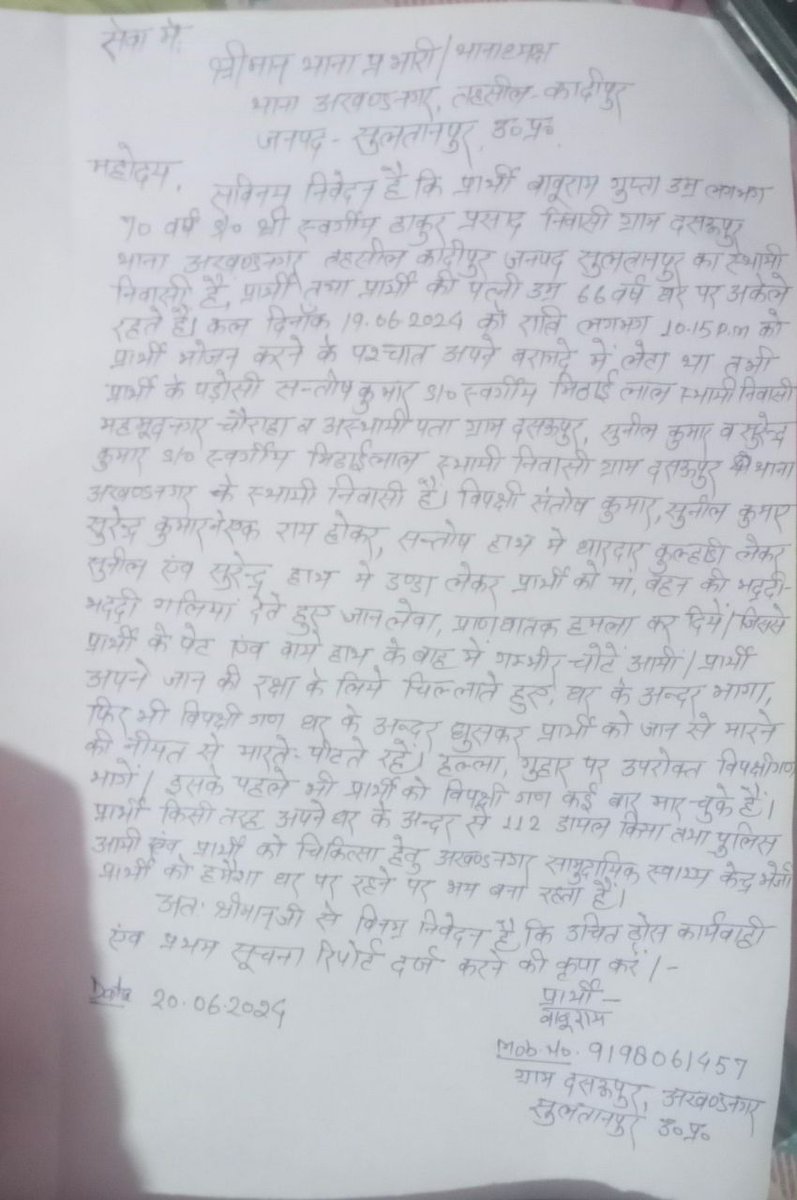 सेवा में,
श्रीमान थाना प्रभारी/थानाध्यक्ष
थाना अखण्डनगर, तहसील-कादीपुर
जनपद-सुलतानपुर, उ०प्र०
महोदय,
सविनय निवेदन है कि प्रार्थी बाबूराम गुप्ता उम्र लगभग
70 वर्ष S/० श्री स्वर्गीय ठाकुर प्रसाद निवासी ग्राम दसऊपुर
थाना अखण्डनगर तहसील कादीपुर जनपद सुलतानपुर का स्थायी
निवासी है, प्रार्थी तथा प्रार्थी की पत्नी उम्र 66 वर्ष घर पर अकेले
रहते है। कल दिनाँक 19.06.2024 को रात्रि लगभग 10.15 P.m को
प्रार्थी भोजन करने के पश्चात अपने बरामदे में लेटा था तभी
प्रार्थी के पड़ोसी सन्तोष कुमार S/० स्वर्गीय मिठाई लाल स्थायी निवासी
महमूदनगर चौराहा व अस्थायी पता ग्राम दसऊपुर, सुनील कुमार व सुरेन्द्र
कुमार S/० स्वर्गीय मिठाईलाल स्थायी निवासी ग्राम दसऊपुर थाना
अखण्डनगर के स्थायी निवासी हैं। विपक्षी संतोष कुमार, सुनील कुमार
सुरेन्द्र कुमार एक राय होकर, सन्तोष हाथ मे धारदार कुल्हाडी लेकर
सुनील एंव सुरेन्द्र हाथ मे डण्डा लेकर प्रार्थी को मां, बहन की भद्दी-
भद्दी गलियां देते हुए जान लेवा, प्राणघातक हमला कर दिये। जिससे
प्रार्थी के पेट एंव बाये हाथ के बाह में गम्भीर चोटें आयी। प्रार्थी
अपने जान की रक्षा के लिये चिल्लाते हुए, घर के अन्दर भागा,
फिर भी विपक्षी गण घर के अन्दर घुसकर प्रार्थी को जान से मारने
की नीयत से मारते-पीटते रहें। हल्ला, गुहार पर उपरोक्त विपक्षीगण
भागे। इसके पहले भी प्रार्थी को विपक्षी गण कई बार मार चुके हैं।
प्रार्थी किसी तरह अपने घर के अन्दर से 112 डायल किया तथा पुलिस
आयी एंव प्रार्थी को चिकित्सा हेतु अखण्डनगर सामुदायिक स्वास्थ्य केन्द्र भेजी
प्रार्थी को हमेशा घर पर रहने पर भय बना रहता हैं।
अतः श्रीमानजी से विनम्र निवेदन है कि उचित ठोस कार्यवाही
एंव प्रथम सूचना रिपोर्ट दर्ज करने की कृपा करें।-
Date 20.06.2024
प्रार्थी-
बाबूराम
Mob.No. 9198061457
ग्राम दसऊपुर, अखण्डनगर
सुलतानपुर उ०प्र०